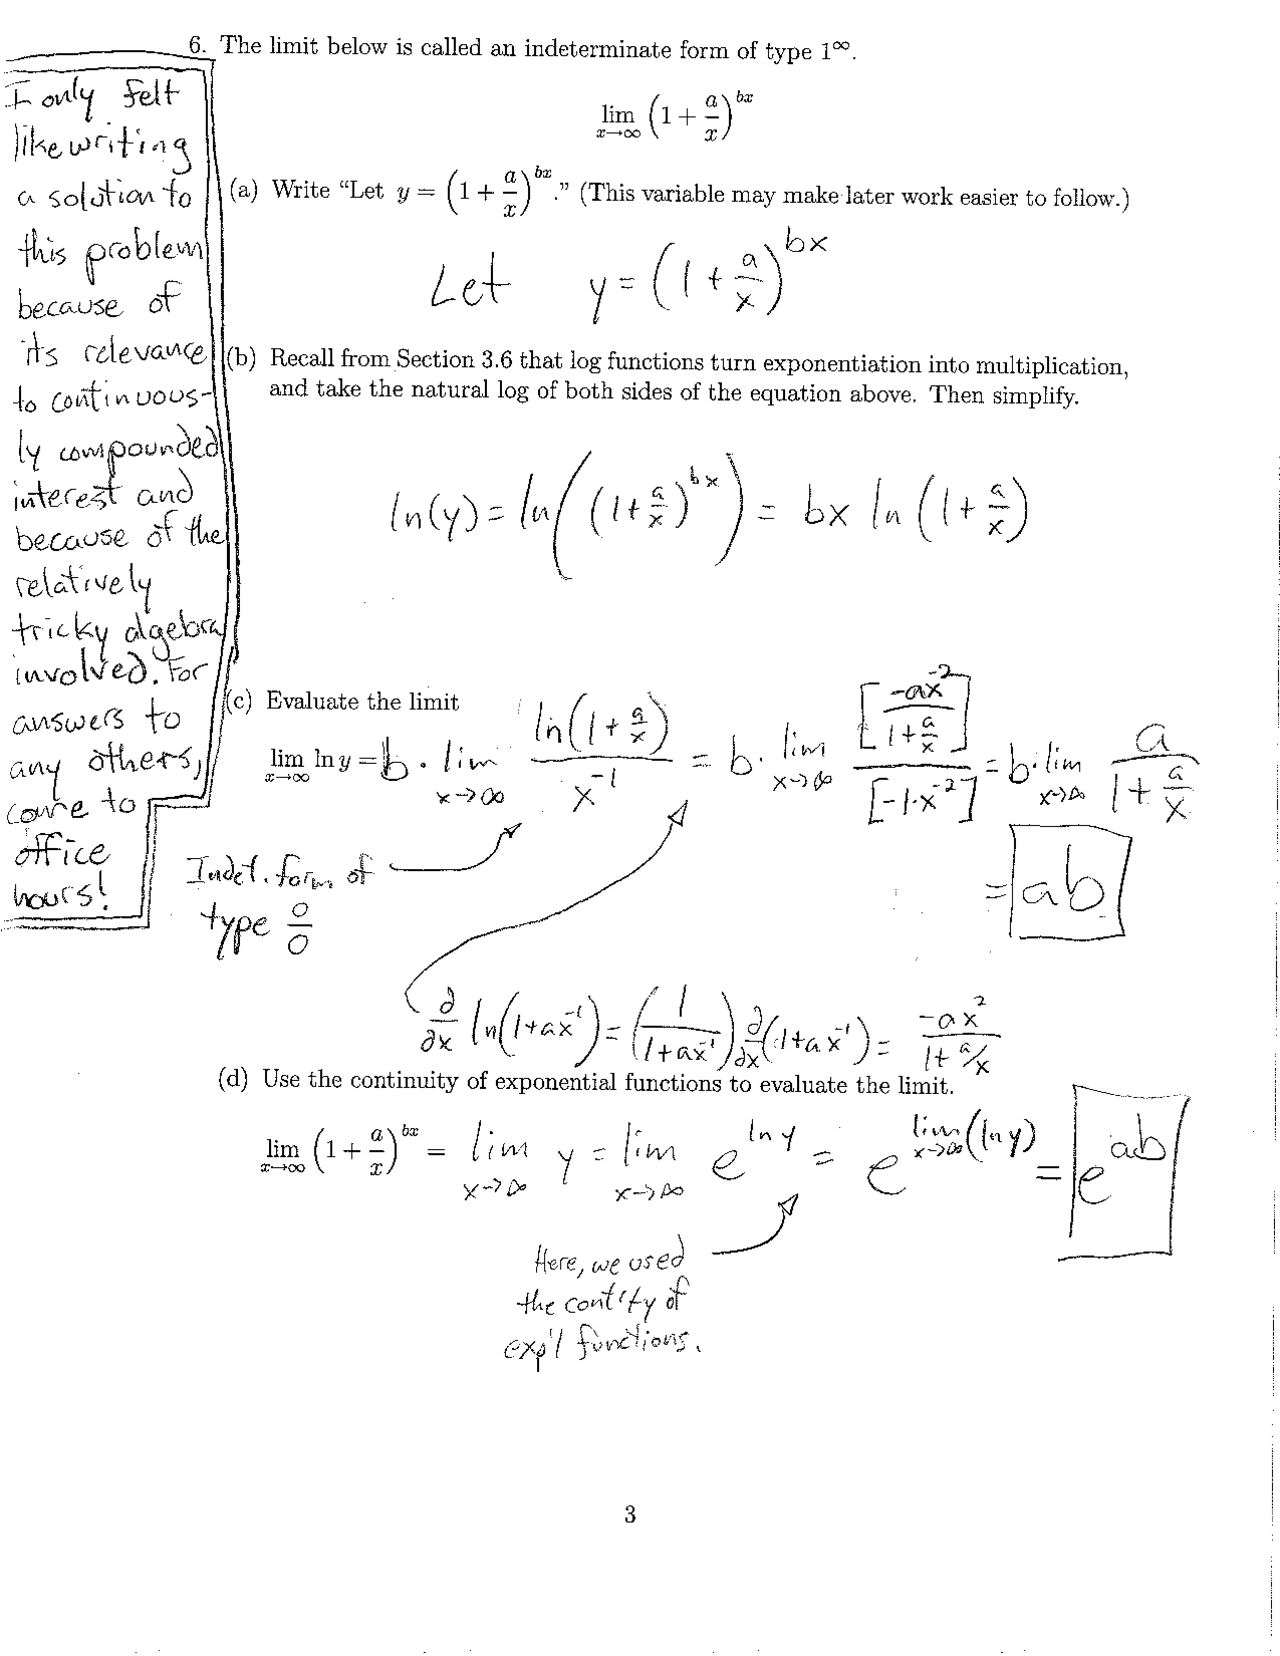 6. The limit below is called an indeterminate form of type 1^∞.
lim_{x→∞} (1 + a/x)^{bx}
I only felt
like writing
a solution to
this problem
because of
its relevance
to continuous-
ly compounded
interest and
because of the
relatively
tricky algebra
involved. For
answers to
any others,
come to
office
hours!
(a) Write “Let y = (1 + a/x)^{bx}.” (This variable may make later work easier to follow.)
Let y = (1 + a/x)^{bx}
(b) Recall from Section 3.6 that log functions turn exponentiation into multiplication,
and take the natural log of both sides of the equation above. Then simplify.
ln(y) = ln((1 + a/x)^{bx}) = bx ln(1 + a/x)
(c) Evaluate the limit
lim_{x→∞} ln y = b · lim_{x→∞} ln(1 + a/x) / x^{-1} = b · lim_{x→∞} [-ax^{-2} / (1 + a/x)] / [-1·x^{-2}] = b · lim_{x→∞} a / (1 + a/x)
= ab
Indet. form of
type 0/0
∂/∂x ln(1+ax^{-1}) = (1/(1+ax^{-1})) ∂/∂x (1+ax^{-1}) = -ax^{2} / (1 + a/x)
(d) Use the continuity of exponential functions to evaluate the limit.
lim_{x→∞} (1 + a/x)^{bx} = lim_{x→∞} y = lim_{x→∞} e^{ln y} = e^{lim_{x→∞}(ln y)} = e^{ab}
Here, we used
the cont'ty of
exp'l functions.
3